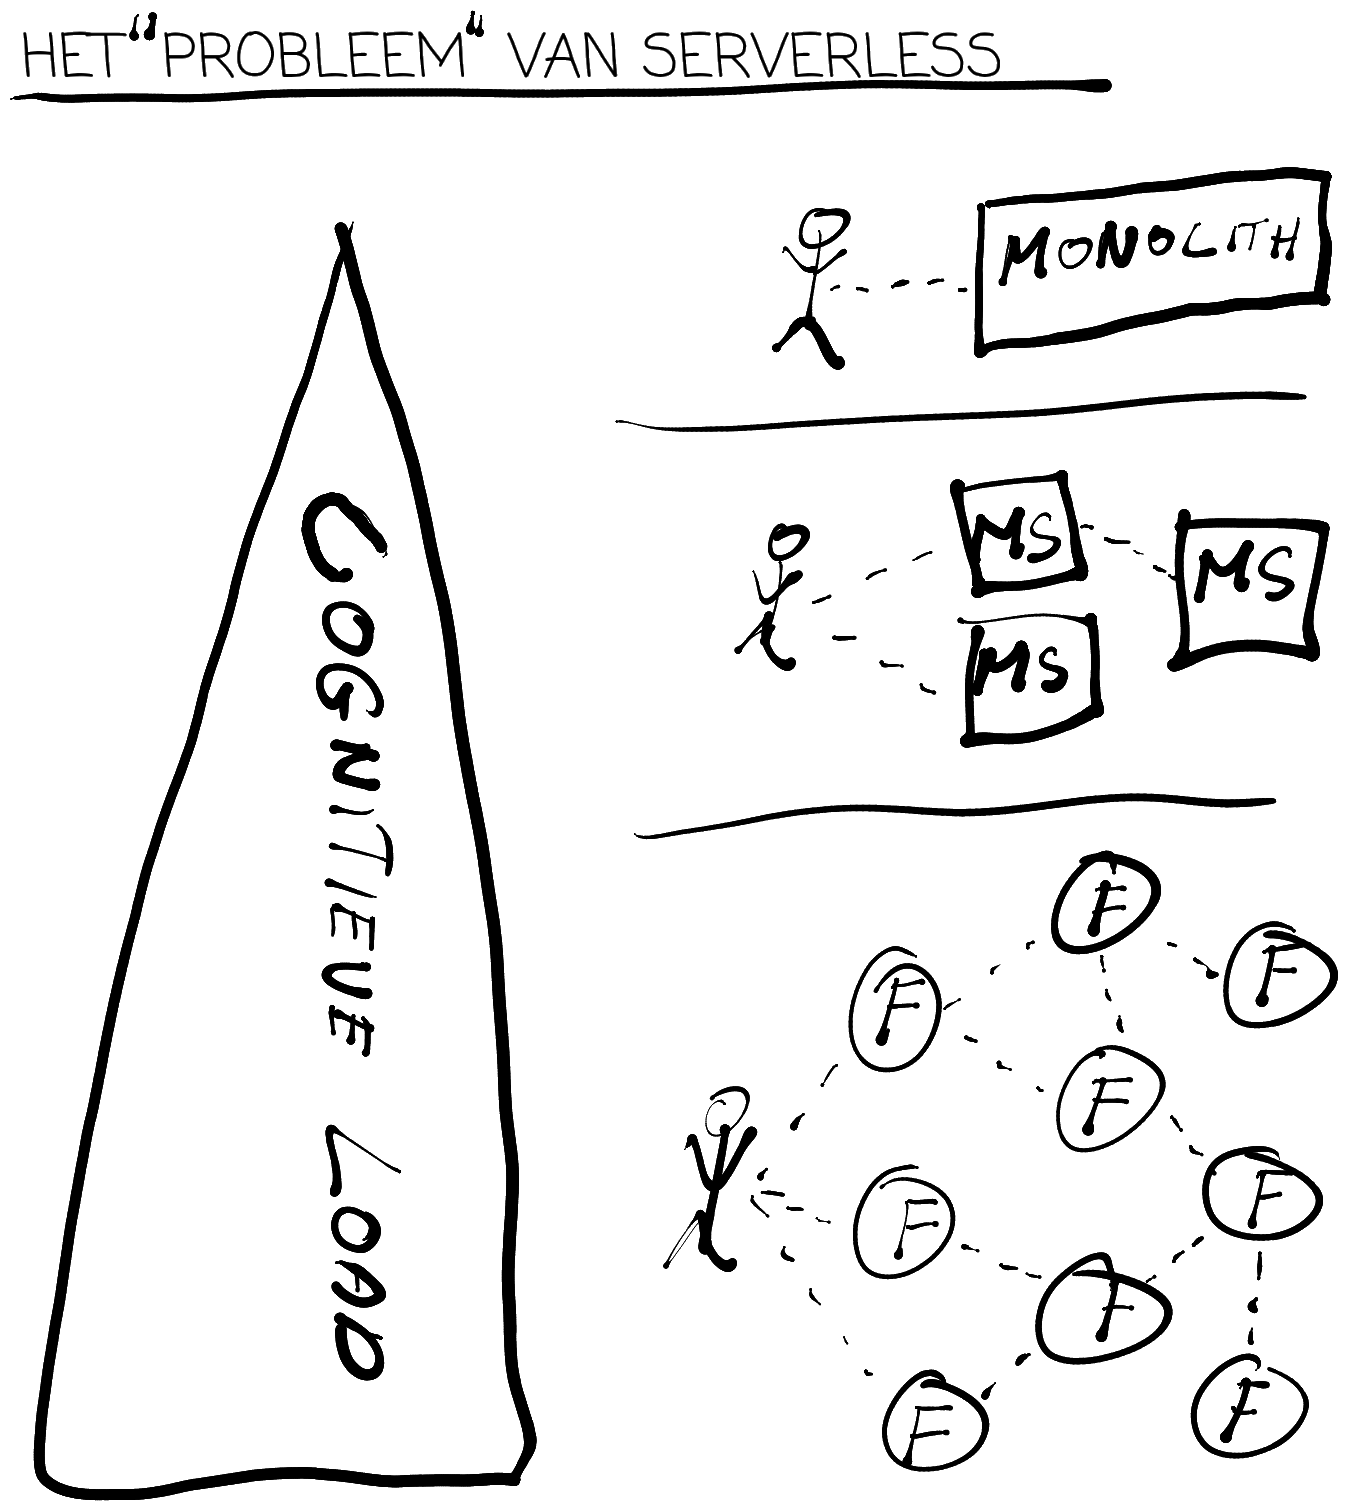 HET "PROBLEEM" VAN SERVERLESS
COGNITIEVE LOAD
MONOLITH
MS
MS
MS
F
F
F
F
F
F
F
F
F